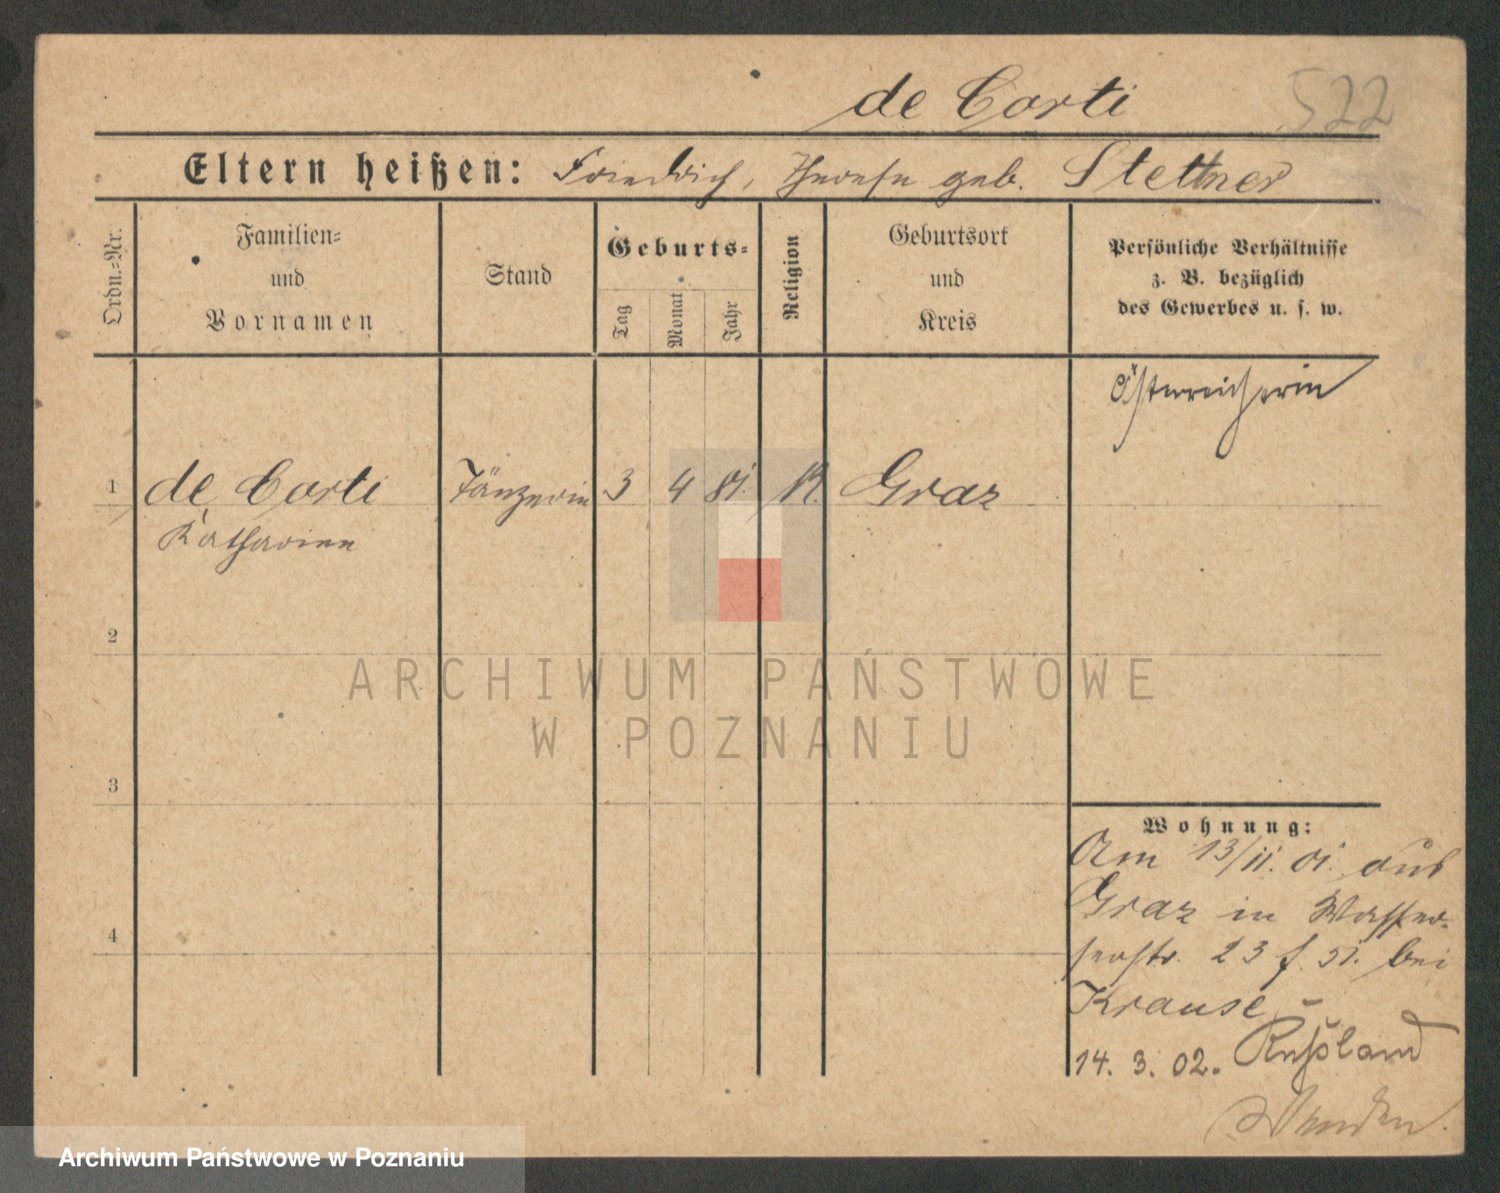 de Corti 522
Eltern heißen: Friedrich, Therese geb. Stettner
Ordn.-Nr.
Familien-
und
Vornamen
Stand
Geburts-
Tag
Monat
Jahr
Religion
Geburtsort
und
Kreis
Persönliche Verhältnisse
z. B. bezüglich
des Gewerbes u. s. w.
Österreicherin
1 de Corti Tänzerin 3 4 81. K. Graz
Katharina
2
3
4
ARCHIWUM PAŃSTWOWE
W POZNANIU
Wohnung:
Am 13/11. 01. aus
Graz in Wasser-
str. 23 bei
Krause
14. 3. 02. Rußland
Wenden.
Archiwum Państwowe w Poznaniu